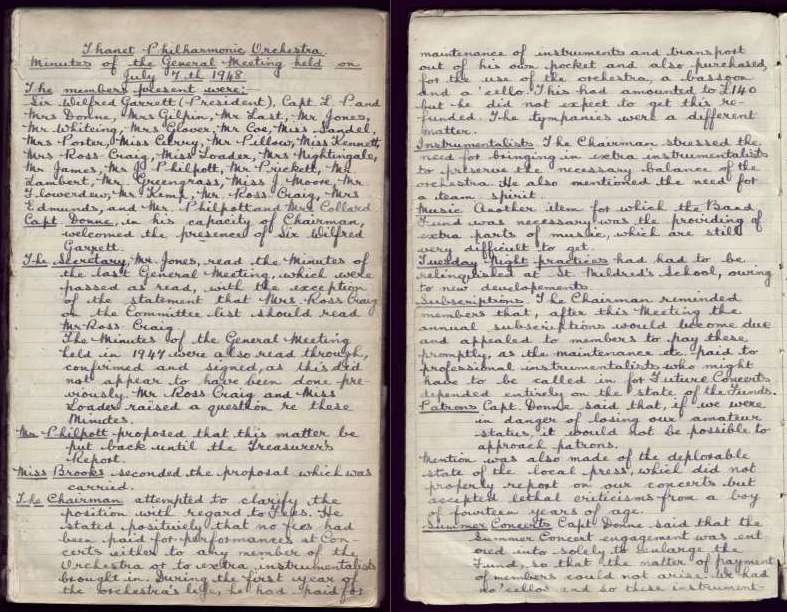 Thanet Philharmonic Orchestra
Minutes of the General Meeting held on
July 7th 1948
The members present were:-
Sir Wilfred Garrett (President), Capt L P and
Mrs Donne, Mrs Gilpin, Mr Last, Mr Jones,
Mr Whiteing, Mrs Glover, Mr Coe, Miss Sandel,
Mrs Porter, Miss Mr Pillow, Miss Kennett,
Mrs Ross-Craig, Miss Loader, Mrs Nightingale,
Mr James, Mr J. Philpott, Mr Prickett, Mr
Lambert, Mr Greengrass, Miss J Moore, Mr
Flowerdew, Mr Kemp, Mr Ross Craig, Mrs
Edmunds, and Mr Philpott and Mrs Collard.
Capt. Donne, in his capacity of Chairman,
welcomed the presence of Sir Wilfred
Garrett.
The Secretary, Mr. Jones, read the Minutes of
the last General Meeting, which were
passed as read, with the exception
of the statement that Mrs Ross Craig
on the Committee list should read
Mr Ross Craig.
The Minutes of the General Meeting
held in 1947 were also read through,
confirmed and signed, as this did
not appear to have been done pre-
viously. Mr Ross Craig and Miss
Loader raised a question re these
Minutes.
Mr Philpott proposed that this matter be
put back until the Treasurer's
Report.
Miss Brooks seconded the proposal which was
carried.
The Chairman attempted to clarify the
position with regard to Fees. He
stated positively that no fees had
been paid for performances at Con-
certs either to any member of the
Orchestra or to extra instrumentalists
brought in. During the first year of
the orchestra's life, he had paid for
maintenance of instruments and transport
out of his own pocket and also purchased,
for the use of the orchestra, a bassoon
and a 'cello. This had amounted to £140
but he did not expect to get this re-
funded. The tympanies were a different
matter.
Instrumentalists The Chairman stressed the
need for bringing in extra instrumentalists
to preserve the necessary balance of the
orchestra. He also mentioned the need for
a team spirit.
Music Another item for which the Band
Fund was necessary was the providing of
extra parts of music, which are still
very difficult to get.
Tuesday Night practices had had to be
relinquished at St. Mildred's School, owing
to new developements.
Subscriptions. The Chairman reminded
members that, after this Meeting the
annual subscriptions would become due
and appealed to members to pay these
promptly, as the maintenance etc. paid to
professional instrumentalists who might
have to be called in for Future Concerts
depended entirely on the state of the Funds.
Patrons Capt. Donne said that, if we were
in danger of losing our amateur
status, it would not be possible to
approach patrons.
Mention was also made of the deplorable
state of the local press, which did not
properly report on our concerts but
accepted lethal criticisms from a boy
of fourteen years of age.
Summer Concerts Capt Donne said that the
Summer Concert engagement was ent
ered into solely to enlarge the
Fund, so that the matter of payment
of members could not arise. We had
no 'cellos and so these instrument-